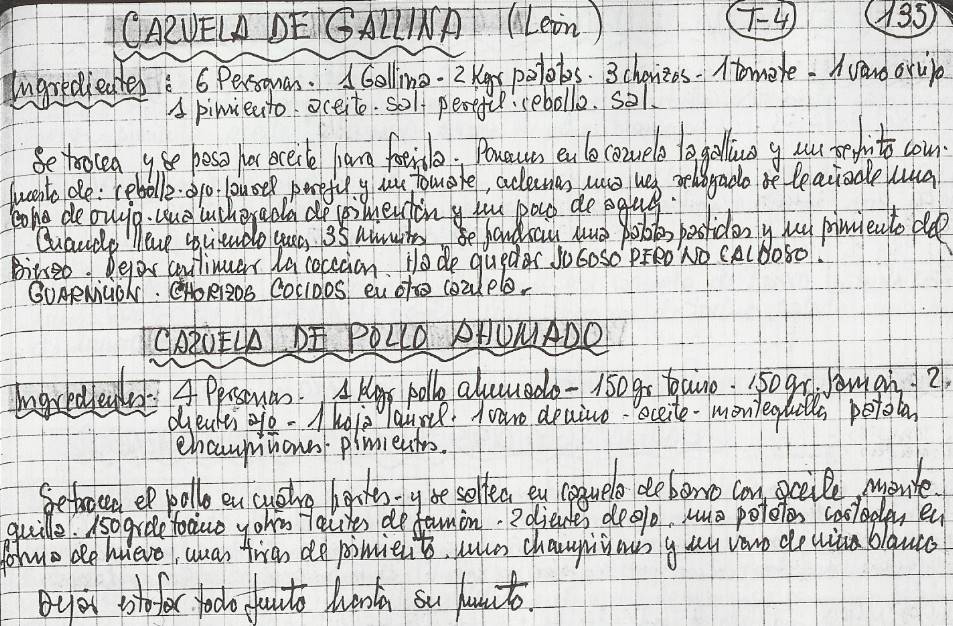 CAZUELA DE GALLINA (León) T-4 135
Ingredientes: 6 Personas. 1 Gallina - 2 Kgr patatas. 3 chorizos - 1 tomate - 1 vaso orujo
1 pimiento. aceite. sal. perejil. cebolla. sal.
Se trocea y se pasa por aceite para freirla. Ponemos en la cazuela la gallina y un refrito com-
puesto de: cebolla. ajo. laurel perejil y un tomate, ademas una vez rehogado se le añade una
copa de orujo. una cucharada de pimentón y un poco de agua.
Cuando lleve cociendo unos 35 minutos se pondran unas patatas partidas y un pimiento del
Bierzo. Dejar continuar la coccion. Ha de quedar JUGOSO PERO NO CALDOSO.
GUARNICIÓN. CHORIZOS COCIDOS en otra cazuela.
CAZUELA DE POLLO AHUMADO
Ingredientes: 4 Personas. 1 Kgr pollo ahumado - 150 gr tocino - 150 gr. jamon. 2
dientes ajo - 1 hoja laurel. 1 vaso de vino - aceite - mantequilla patatas
champiñones. pimientos.
Se trocea el pollo en cuatro partes - y se saltea en cazuela de barro con aceite, mante-
quilla. 150 gr de tocino y otros tantos de jamón. 2 dientes de ajo, unas patatas cortadas en
forma de huevo, unas tiras de pimiento, unos champiñones y un vaso de vino blanco
Dejar estofar todo junto hasta su punto.